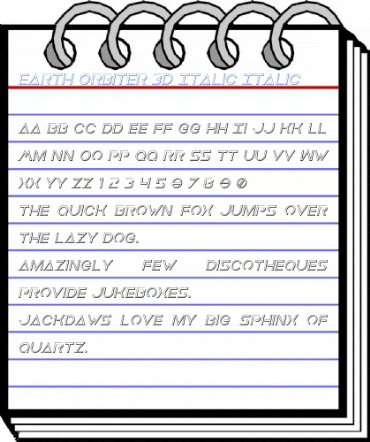 EARTH ORBITER 3D ITALIC ITALIC
AA BB CC DD EE FF GG HH II JJ KK LL
MM NN OO PP QQ RR SS TT UU VV WW
XX YY ZZ 1 2 3 4 5 6 7 8 9 0
THE QUICK BROWN FOX JUMPS OVER
THE LAZY DOG.
AMAZINGLY FEW DISCOTHEQUES
PROVIDE JUKEBOXES.
JACKDAWS LOVE MY BIG SPHINX OF
QUARTZ.